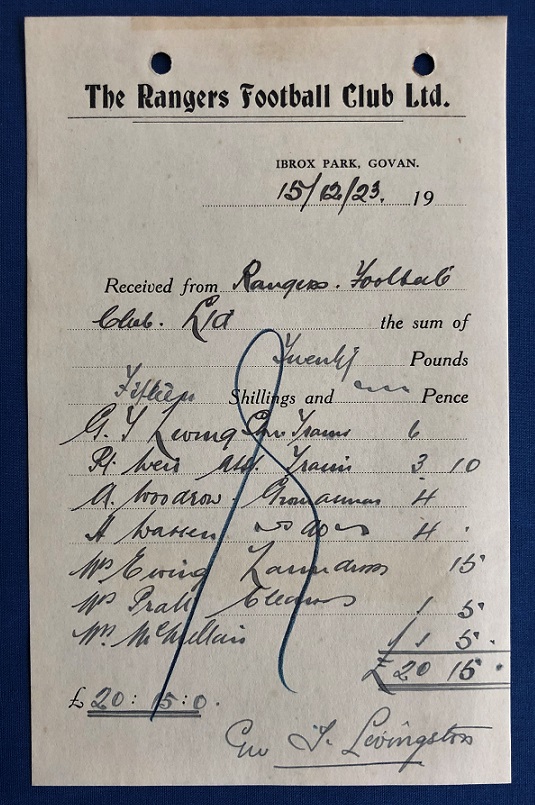 The Rangers Football Club Ltd.
IBROX PARK, GOVAN.
15/12/23. 19
Received from Rangers. Football
Club. Ltd the sum of
Twenty Pounds
Fifteen Shillings and Pence
G. T Livings Trains 6
Rt. Weir Ast. Trains 3 10
A. Woodrow. Groundsman 4
A 4
Mrs Ewing Laundress 15
Mrs Pratt Cleaners 1 5
Mrs. McMellain 1 5.
£ 20 15.
£ 20: 15:0.
Geo T. Livingston